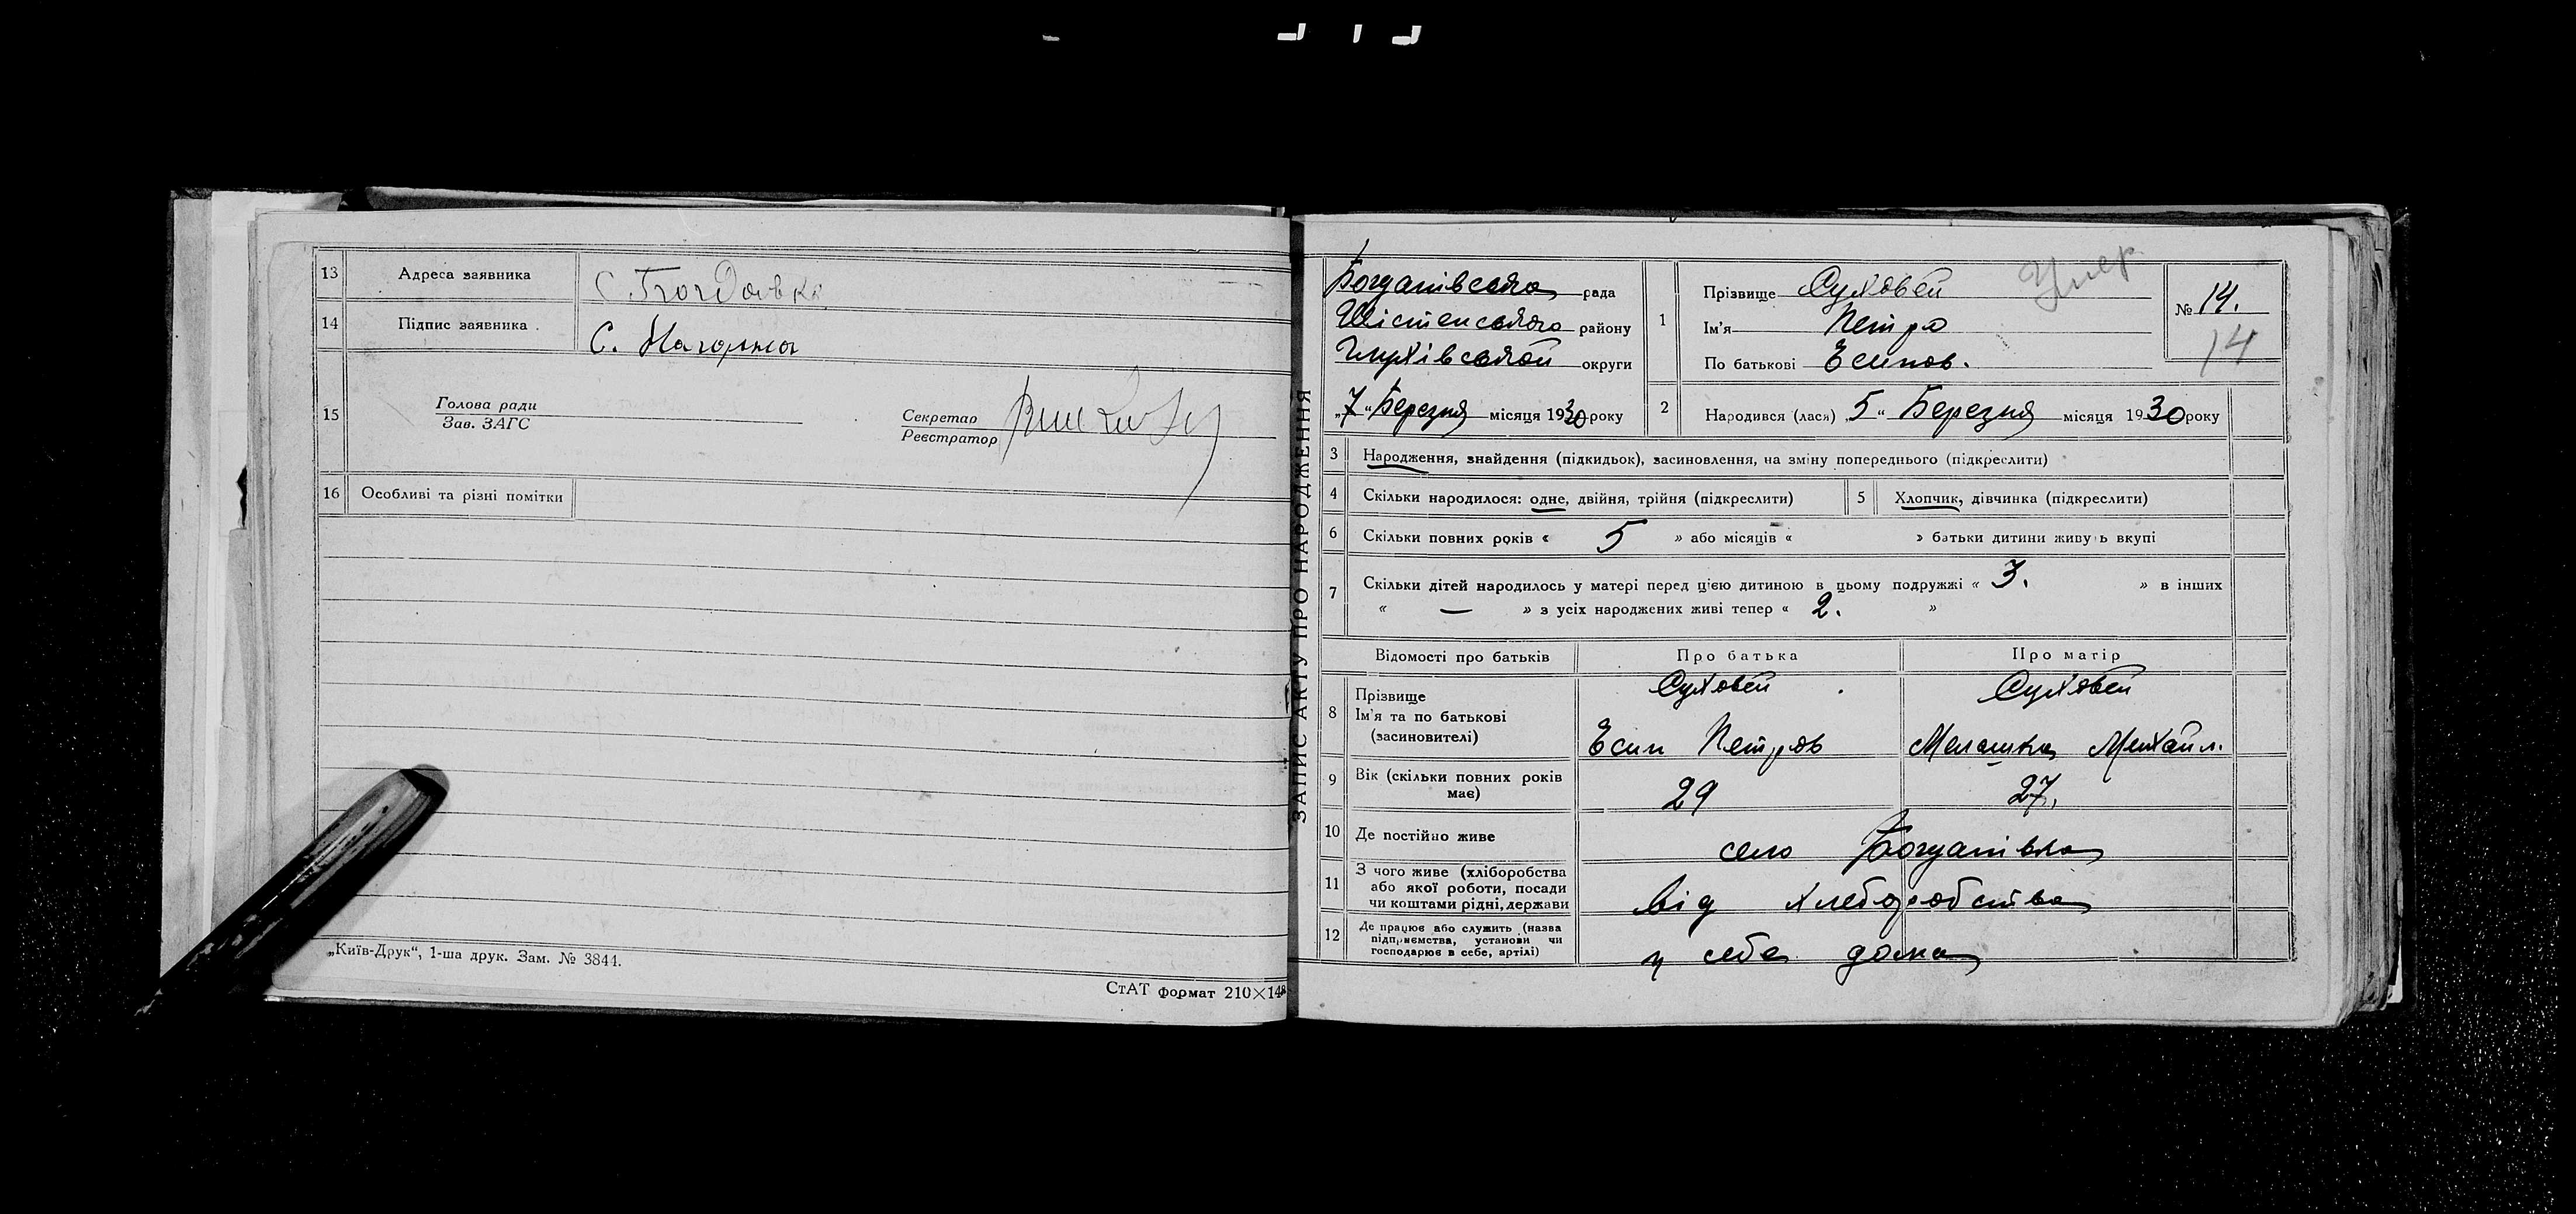 13 Адреса заявника
14 Підпис заявника
С.
15 Голова ради
Зав. ЗАГС
Секретар
Реєстратор
16 Особливі та різні помітки
„Київ-Друк“, 1-ша друк. Зам. № 3844.
СтАТ формат 210×148
ЗАПИС АКТУ ПРО НАРОДЖЕННЯ
Богданівська рада
району
Глухівської округи
„7“ Березня місяця 1930 року
Умер
№ 14.
14
1 Прізвище Суховей
Ім'я Петро
По батькові Есипов.
2 Народився (лася) „5“ Березня місяця 1930 року
3 Народження, знайдення (підкидьок), засиновлення, на зміну попереднього (підкреслити)
4 Скільки народилося: одне, двійня, трійня (підкреслити)
5 Хлопчик, дівчинка (підкреслити)
6 Скільки повних років « 5 » або місяців « » батьки дитини живуть вкупі
7 Скільки дітей народилось у матері перед цією дитиною в цьому подружжі « 3. » в інших
« — » з усіх народжених живі тепер « 2. »
Відомості про батьків Про батька Про матір
8 Прізвище Суховей Суховей
Ім'я та по батькові
(засновителі) Есип Петров Мелашка Михайл.
9 Вік (скільки повних років
має) 29 27.
10 Де постійно живе село Богданівка
11 З чого живе (хліборобства
або якої роботи, посади
чи коштами рідні, держави від хлеборобства
12 Де працює або служить (назва
підприємства, установи чи
господарює в себе, артілі) у себе дома